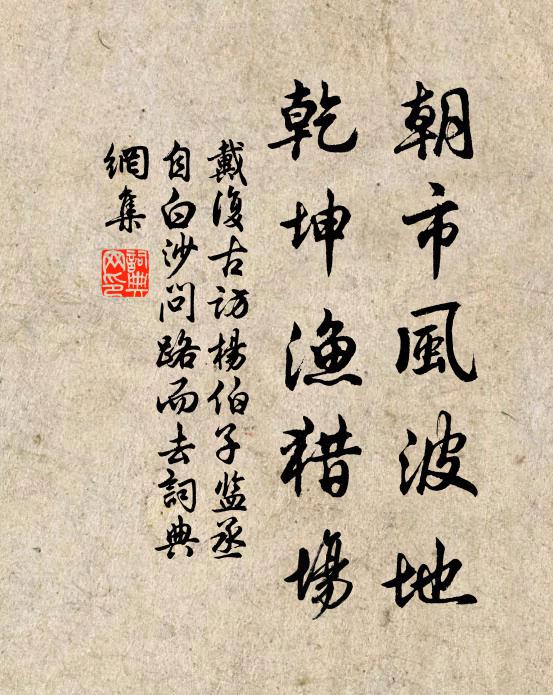 朝市風波地
乾坤漁猎場
戴復古訪楊伯子监丞
自白沙问路而去詞典
網集
詞典
网印